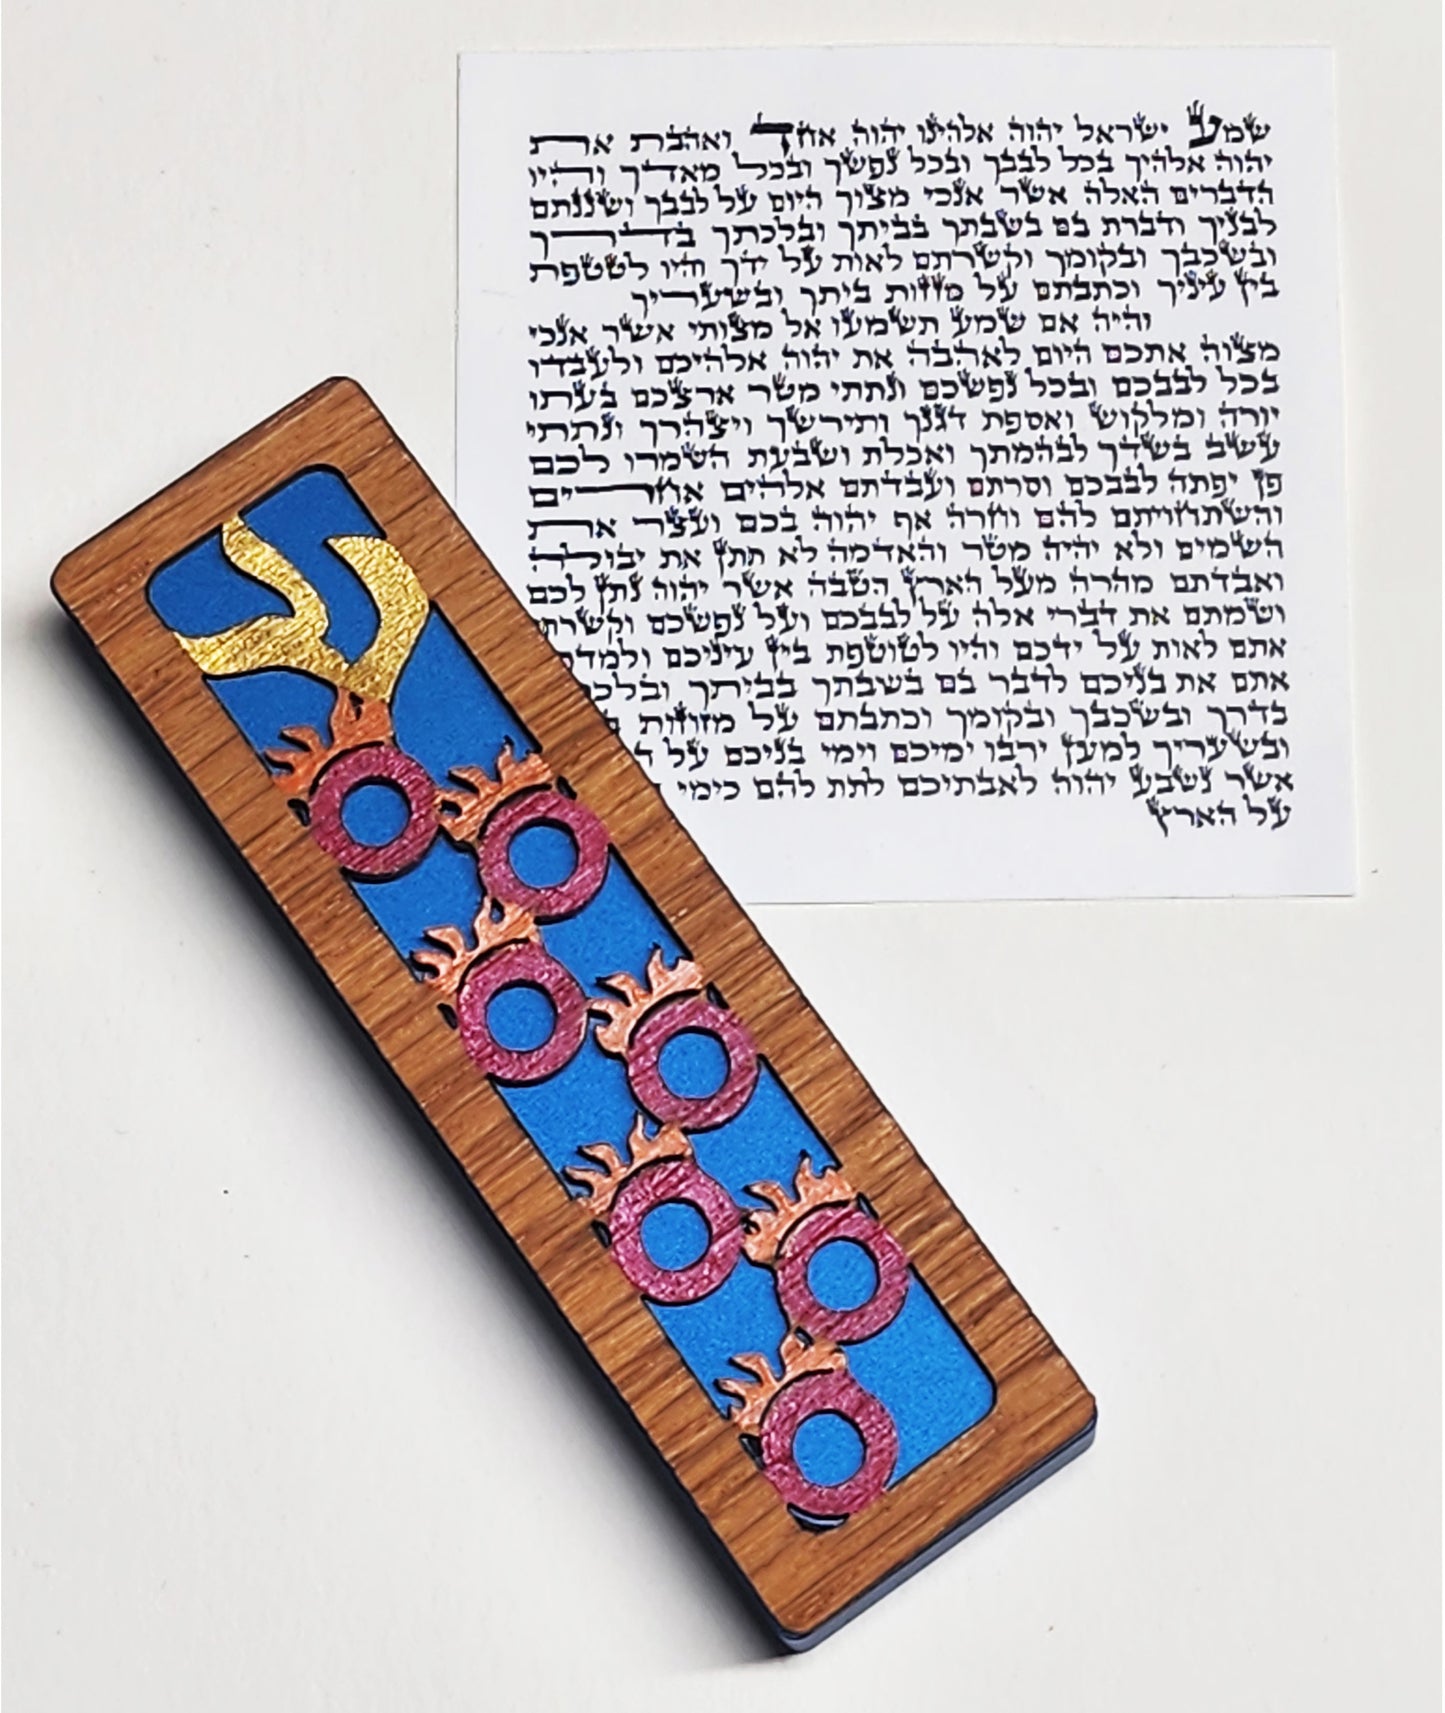 ש
שמע ישראל יהוה אלהינו יהוה אחד ואהבת את
יהוה אלהיך בכל לבבך ובכל נפשך ובכל מאדך והיו
הדברים האלה אשר אנכי מצוך היום על לבבך ושננתם
לבניך ודברת בם בשבתך בביתך ובלכתך בדרך
ובשכבך ובקומך וקשרתם לאות על ידך והיו לטטפת
בין עיניך וכתבתם על מזזות ביתך ובשעריך
והיה אם שמע תשמעו אל מצותי אשר אנכי
מצוה אתכם היום לאהבה את יהוה אלהיכם ולעבדו
בכל לבבכם ובכל נפשכם ונתתי מטר ארצכם בעתו
יורה ומלקוש ואספת דגנך ותירשך ויצהרך ונתתי
עשב בשדך לבהמתך ואכלת ושבעת השמרו לכם
פן יפתה לבבכם וסרתם ועבדתם אלהים אחרים
והשתחויתם להם וחרה אף יהוה בכם ועצר את
השמים ולא יהיה מטר והאדמה לא תתן את יבולה
ואבדתם מהרה מעל הארץ הטבה אשר יהוה נתן לכם
ושמתם את דברי אלה על לבבכם ועל נפשכם וקשרתם
אתם לאות על ידכם והיו לטוטפת בין עיניכם ולמדתם
אתם את בניכם לדבר בם בשבתך בביתך ובלכתך
בדרך ובשכבך ובקומך וכתבתם על מזוזות
ובשעריך למען ירבו ימיכם וימי בניכם על
אשר נשבע יהוה לאבתיכם לתת להם כימי
על הארץ